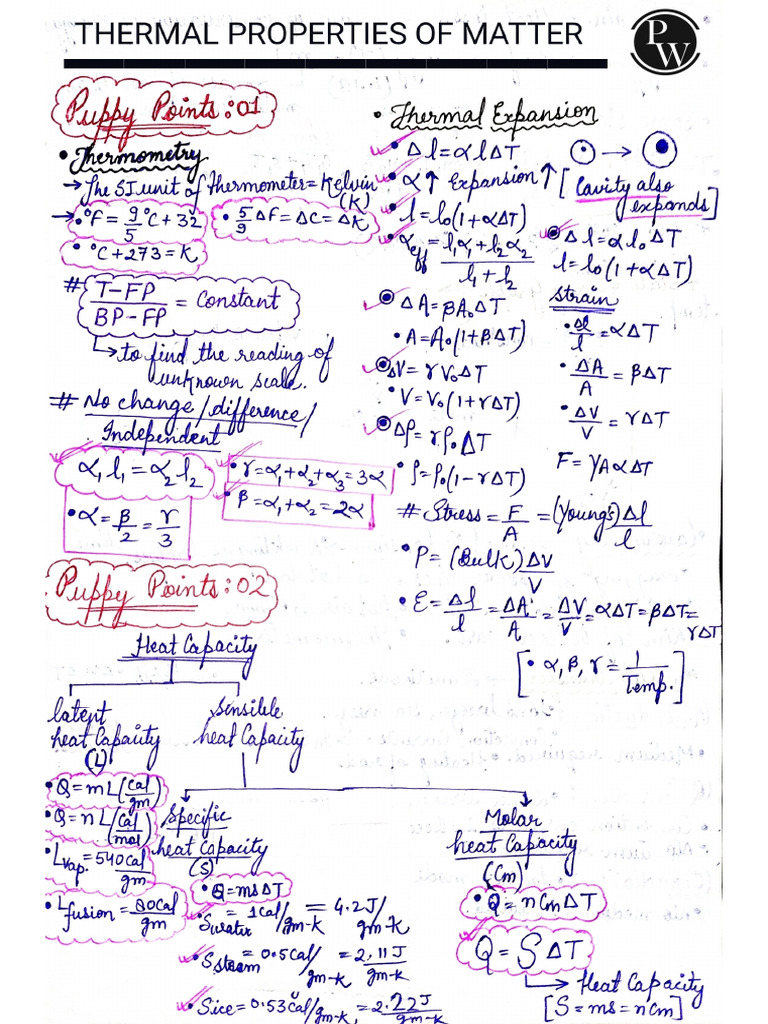 THERMAL PROPERTIES OF MATTER
P
W
Puppy Points: 01
• Thermometry
→ The SI unit of Thermometer = Kelvin
(K)
→ • °F = 9/5 °C + 32
• 5/9 ΔF = ΔC = ΔK
• °C + 273 = K
# T-FP/BP-FP = Constant
↳ to find the reading of
unknown scale.
# No change/difference/
Independent
α₁l₁ = α₂l₂
• γ = α₁ + α₂ + α₃ = 3α
• β = α₁ + α₂ = 2α
• α = β/2 = γ/3
• Thermal Expansion
• Δl = αlΔT
• α↑ Expansion↑ [Cavity also
expands]
• l = l₀(1+αΔT)
• αeff = l₁α₁ + l₂α₂/l₁ + l₂
Δl = αl₀ΔT
l = l₀(1+αΔT)
• ΔA = βA₀ΔT
• A = A₀(1+βΔT)
• ΔV = γV₀ΔT
• V = V₀(1+γΔT)
• Δρ = γρ₀ΔT
• ρ = ρ₀(1-γΔT)
Strain
• Δl/l = αΔT
• ΔA/A = βΔT
• ΔV/V = γΔT
F = YAαΔT
# Stress = F/A = (Young's) Δl/l
• P = (Bulk) ΔV/V
• ε = Δl/l = ΔA/A = ΔV/V = αΔT = βΔT =
γΔT
[• α, β, γ = 1/Temp.]
Puppy Points: 02
Heat Capacity
latent
heat Capaity
(L)
Sinsible
heat Capacity
• Q = mL (Cal/gm)
• Q = nL (Cal/mol)
• Lvap. = 540 Cal/gm
• Lfusion = 80 Cal/gm
Specific
heat Capacity
(S)
• Q = msΔT
• Swater = 1 Cal/gm-k = 4.2 J/gm-K
• Ssteam = 0.5 Cal/gm-k = 2.11 J/gm-k
• Sice = 0.53 Cal/gm-k = 2.22 J/gm-k
Molar
heat Capacity
(Cm)
• Q = nCmΔT
Q = SΔT
↳ Heat Capacity
[S = ms = nCm]